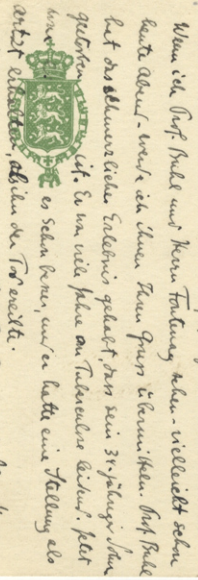 Wenn ich Prof. Buhl und Herrn Fontenay sehen – vielleicht schon
heute Abend – werde ich ihnen Ihren Gruss übermitteln. Prof. Buhl
hat das schmerzliche Erlebnis gehabt, dass sein 34-jähriger Sohn
gestorben ist. Er war viele Jahre an Tuberculose leidend. Jetzt
es schon besser, und er hatte eine Stellung als
arzt erhalten, als ihn der Tod ereilte.